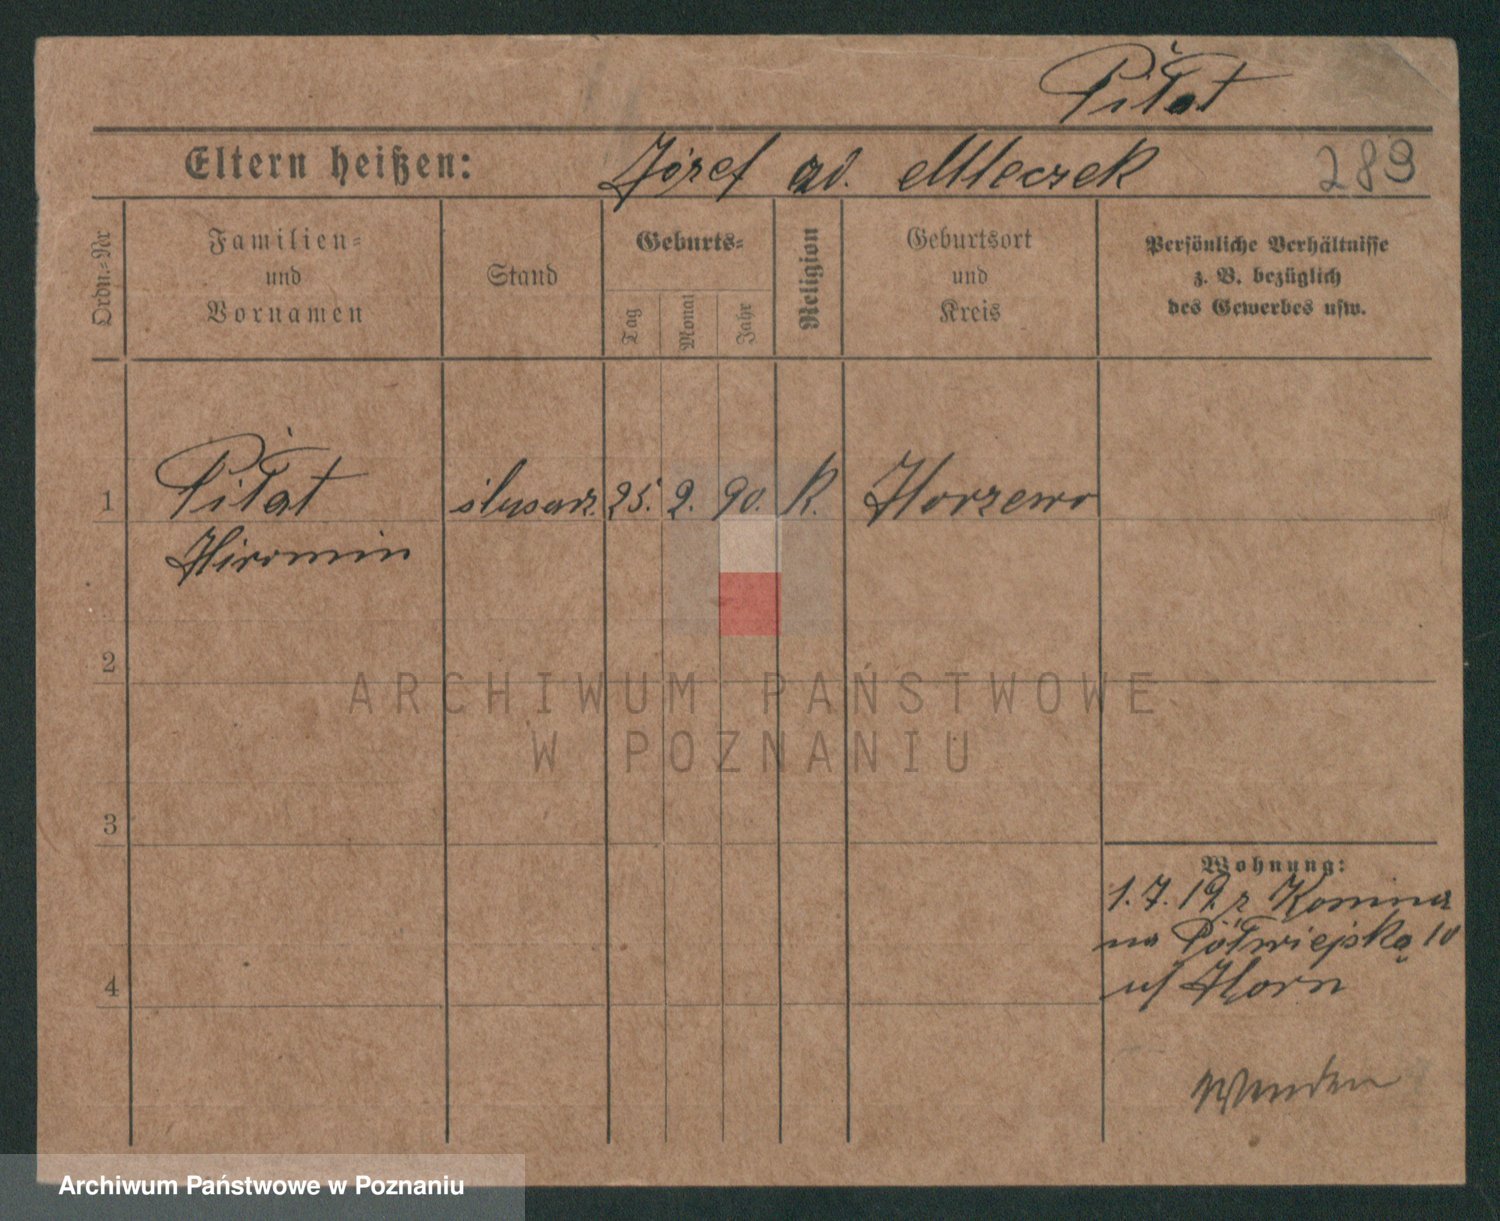 Piłat
Eltern heißen: Józef ad. Mleczek 289
Ordn.-Nr
Familien-
und
Vornamen
Stand
Geburts-
Tag
Monat
Jahr
Religion
Geburtsort
und
Kreis
Persönliche Verhältnisse
z. B. bezüglich
des Gewerbes usw.
1 Piłat ślusarz 25. 2. 90. K. Horzewo
Hiromin
2
ARCHIWUM PAŃSTWOWE
W POZNANIU
3
Wohnung:
1.7.19 z Komina
na Półwiejską 10
u/ Horn
4
Wenden
Archiwum Państwowe w Poznaniu